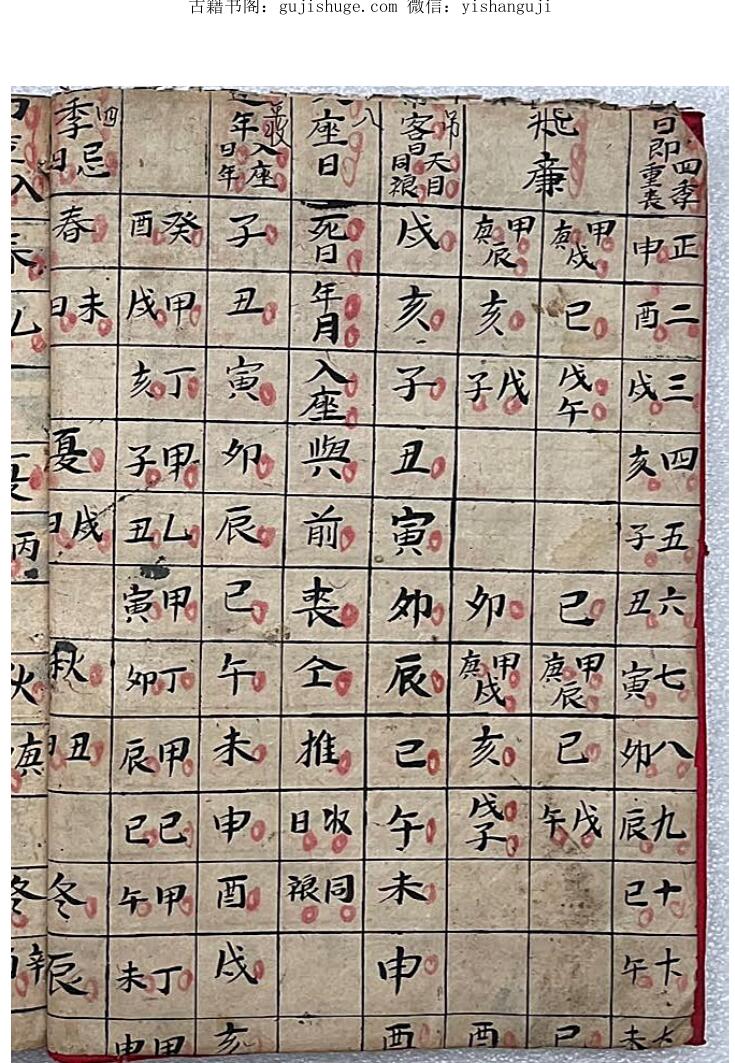 古籍书阁：gujishuge.com 微信：yishanguji
日即四季重丧
正申
二酉
三戌
四亥
五子
六丑
七寅
八卯
九辰
十巳
十午
廉
甲庚戌
巳
戊午
巳
甲庚辰
巳
戊午
巳
甲庚辰
亥
戊子
卯
甲庚戌
亥
戊子
酉
吊客日天目同禄
戌
亥
子
丑
寅
卯
辰
巳
午
未
申
酉
八座日
死日
年月
入座
與
前
丧
仝
推
日
同
年入座日年
子
丑
寅
卯
辰
巳
午
未
申
酉
戌
亥
癸酉
甲戌
丁亥
甲子
乙丑
甲寅
丁卯
甲辰
己巳
甲午
丁未
甲申
四季忌日
春
未日
夏
戌日
秋
丑日
冬
辰
乙
丙
秋
庚
冬
辛